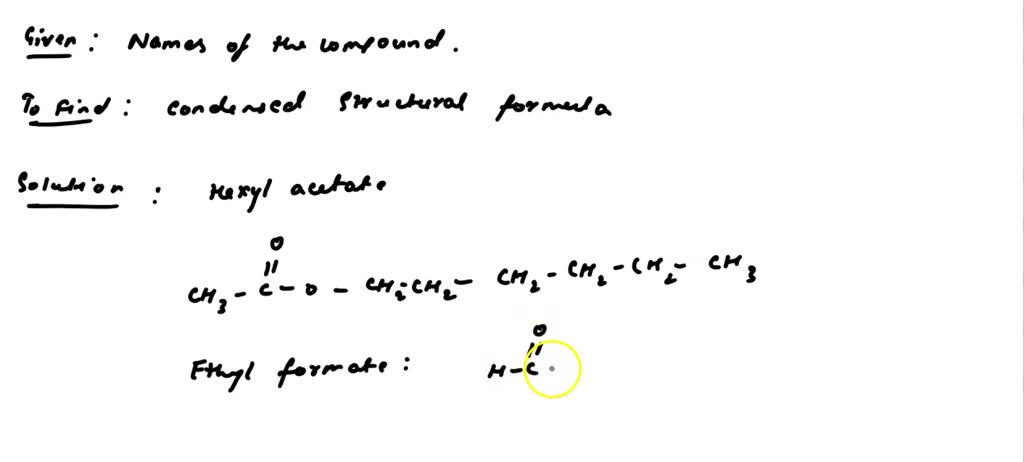 Given : Names of the compound.
To Find : condensed structural formula
Solution : Hexyl acetate
O
||
CH3 - C - O - CH2-CH2 - CH2 - CH2 - CH2 - CH3
O
||
Ethyl formate : H-C